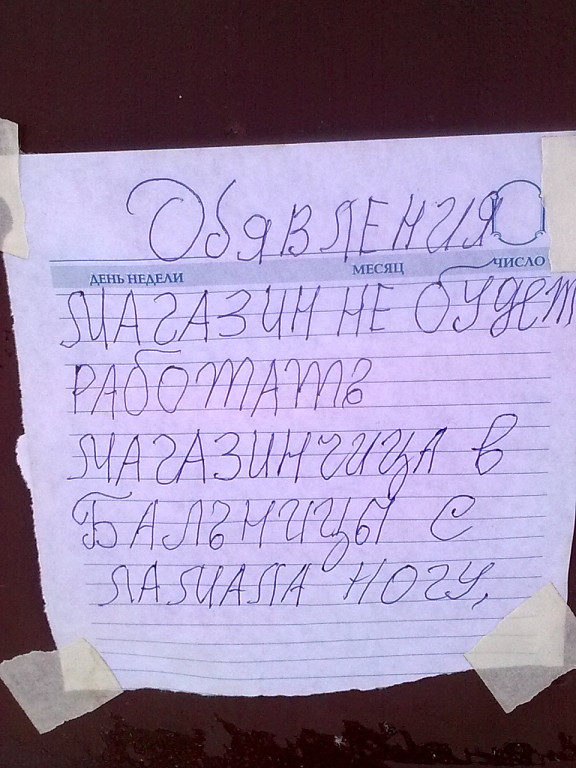 Обявления
ДЕНЬ НЕДЕЛИ МЕСЯЦ ЧИСЛО
МАГАЗИН НЕ будет
РАБОТАТЬ
МАГАЗИНЧИЦА в
БАЛЬНИЦЫ С
ЛАМАЛА НОГУ.